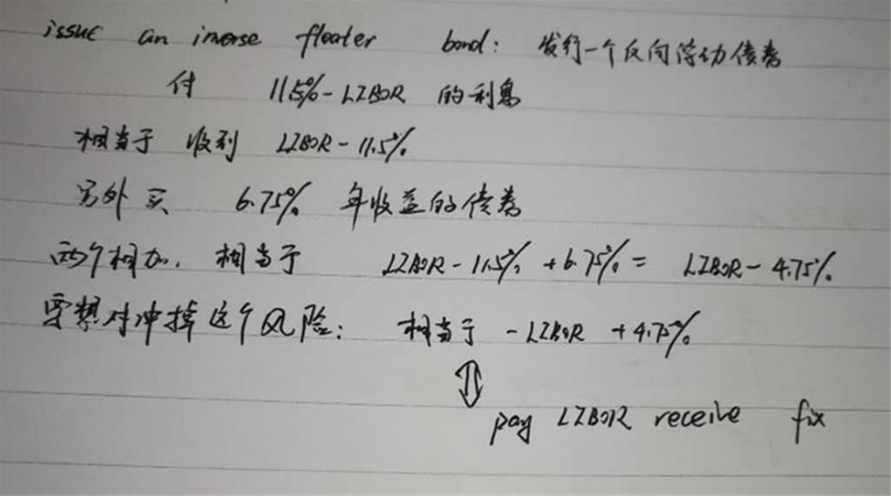 issue an inverse floater bond: 发行一个反向浮动债券
付 11.5%-LIBOR 的利息
相当于 收到 LIBOR-11.5%
另外 买 6.75% 年收益的债券
两个相加, 相当于 LIBOR-11.5%+6.75%= LIBOR-4.75%
要想对冲掉这个风险: 相当于 -LIBOR +4.75%
⇕
pay LIBOR receive fix